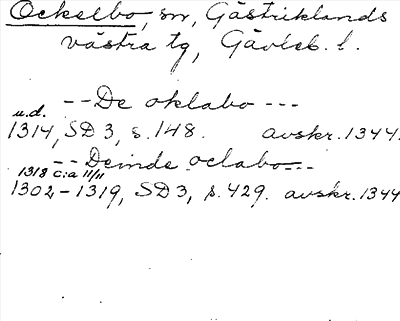 Ockelbo, sn, Gästriklands
västra tg, Gävleb. l.
--De oklabo ---
u.d.
1314, SD 3, s. 148. avskr. 1344.
-- Deinde oclabo---
1318 c:a 11/11
1302-1319, SD 3, s. 429. avskr. 1344